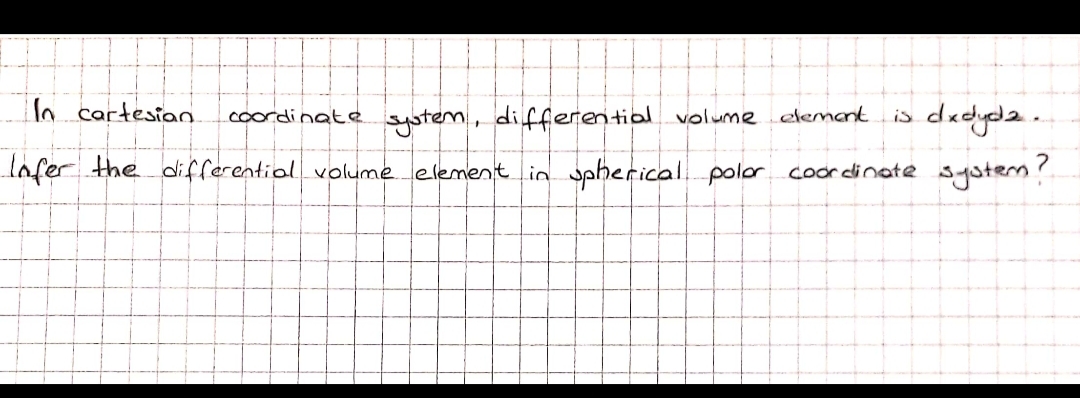 In cartesian coordinate system, differential volume element is dxdydz.
Infer the differential volume element in spherical polar coordinate system?